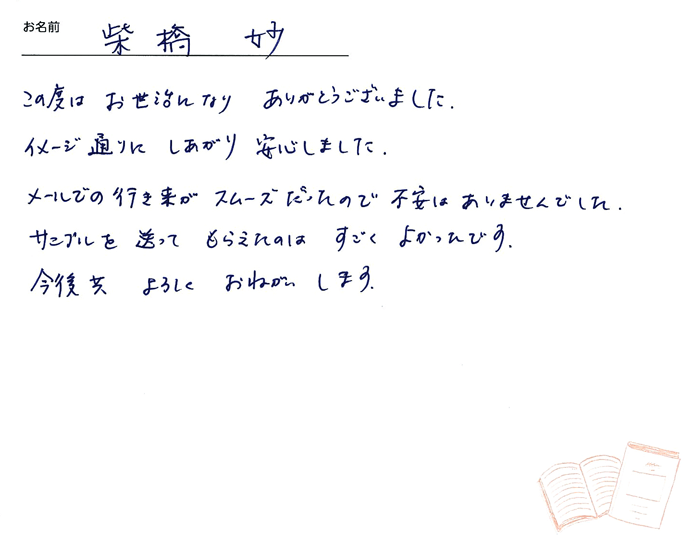 お名前 柴橋 妙
この度は お世治になり ありがとうございました.
イメージ通りに しあがり 安心しました.
メールでの行き来が スムーズだったので 不安はありませんでした.
サンプルを 送って もらえたのは すごく よかったです.
今後共 よろしく おねがい します.